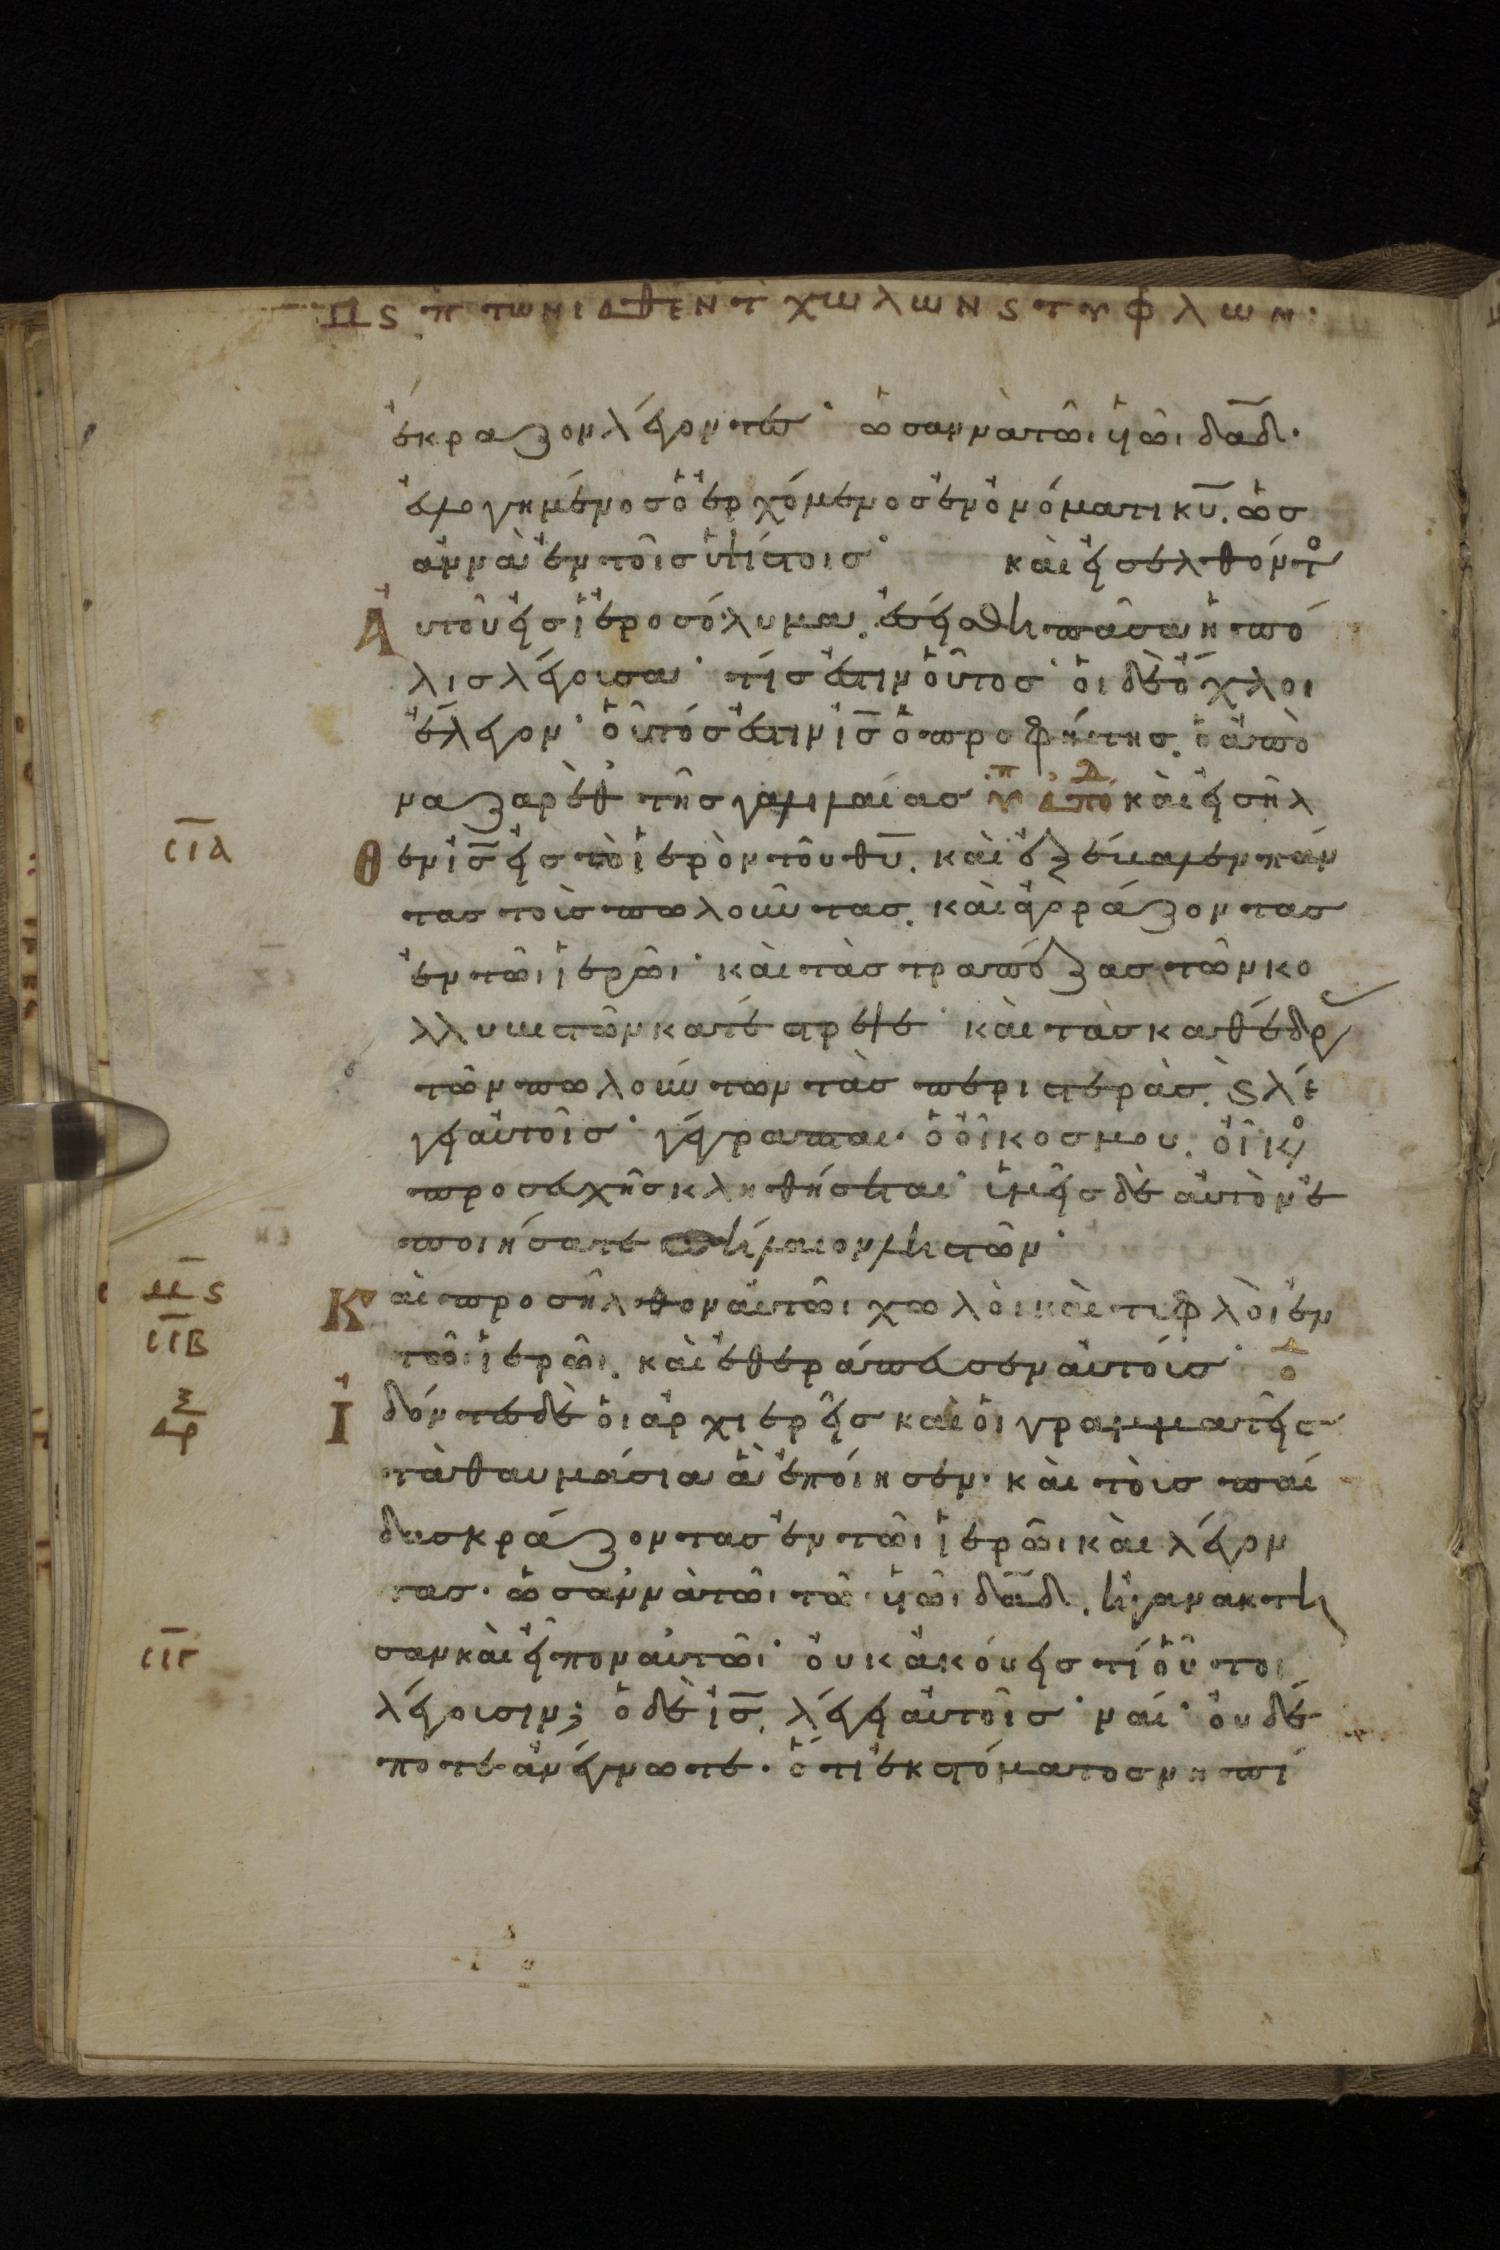 μ̅ς̅ π τῶν ἰαθέντ χωλῶν ς τυφλῶν·
ἔκραζον λέγοντες· ὡσαννὰ τῶι υἱῶι δα̅δ·
εὐλογημένος ὁ ἐρχόμενος ἐν ὀνόματι κυ̅. ὡσ
αννὰ ἐν τοῖς ὑψίστοις· καὶ εἰσελθόντο
Αὐτοῦ εἰς ἱεροσόλυμα. ἐσείσθη πᾶσα ἡ πό
λις λέγουσα· τίς ἐστιν οὗτος· οἱ δὲ ὄχλοι
ἔλεγον· οὗτός ἐστιν ις̅ ὁ προφήτης. ὁ ἀπὸ
ναζαρὲθ τῆς γαλιλαίας καὶ εἰσῆλ
σια̅
Θεν ις̅ εἰς τὸ ἱερὸν τοῦ θυ̅. καὶ ἐξέβαλεν πάν
τας τοὺς πωλοῦντας. καὶ ἀγοράζοντας
ἐν τῶι ἱερῶι· καὶ τὰς τραπέζας τῶν κο
λλυβιστῶν κατέστρεψε· καὶ τὰς καθέδρ
τῶν πωλούντων τὰς περιστεράς. ς λέ
γει αὐτοῖς· γέγραπται· ὁ οἶκος μου. οἶκο
προσευχῆς κληθήσεται· ὑμεῖς δὲ αὐτὸν ἐ
ποιήσατε σπήλαιον ληστῶν·
μ̅ς̅
Καὶ προσῆλθον αὐτῶι χωλοὶ καὶ τυφλοὶ ἐν
σιβ̅
τῶι ἱερῶι. καὶ ἐθεράπευσεν αὐτούς·
Ἰδόντες δὲ οἱ ἀρχιερεῖς καὶ οἱ γραμματεῖς
τὰ θαυμάσια ἃ ἐποίησεν· καὶ τοὺς παῖ
δας κράζοντας ἐν τῶι ἱερῶι καὶ λέγον
τας· ὡσαννὰ τῶι τῶ υἱῶι δα̅δ. ἠγανάκτη
σιγ̅
σαν καὶ εἶπον αὐτῶι· οὐκ ἀκούεις τί οὗτοι
λέγουσιν; ὁ δὲ ις̅. λέγει αὐτοῖς· ναί· οὐδέ
ποτε ἀνέγνωτε· ὅτι ἐκ στόματος νηπί